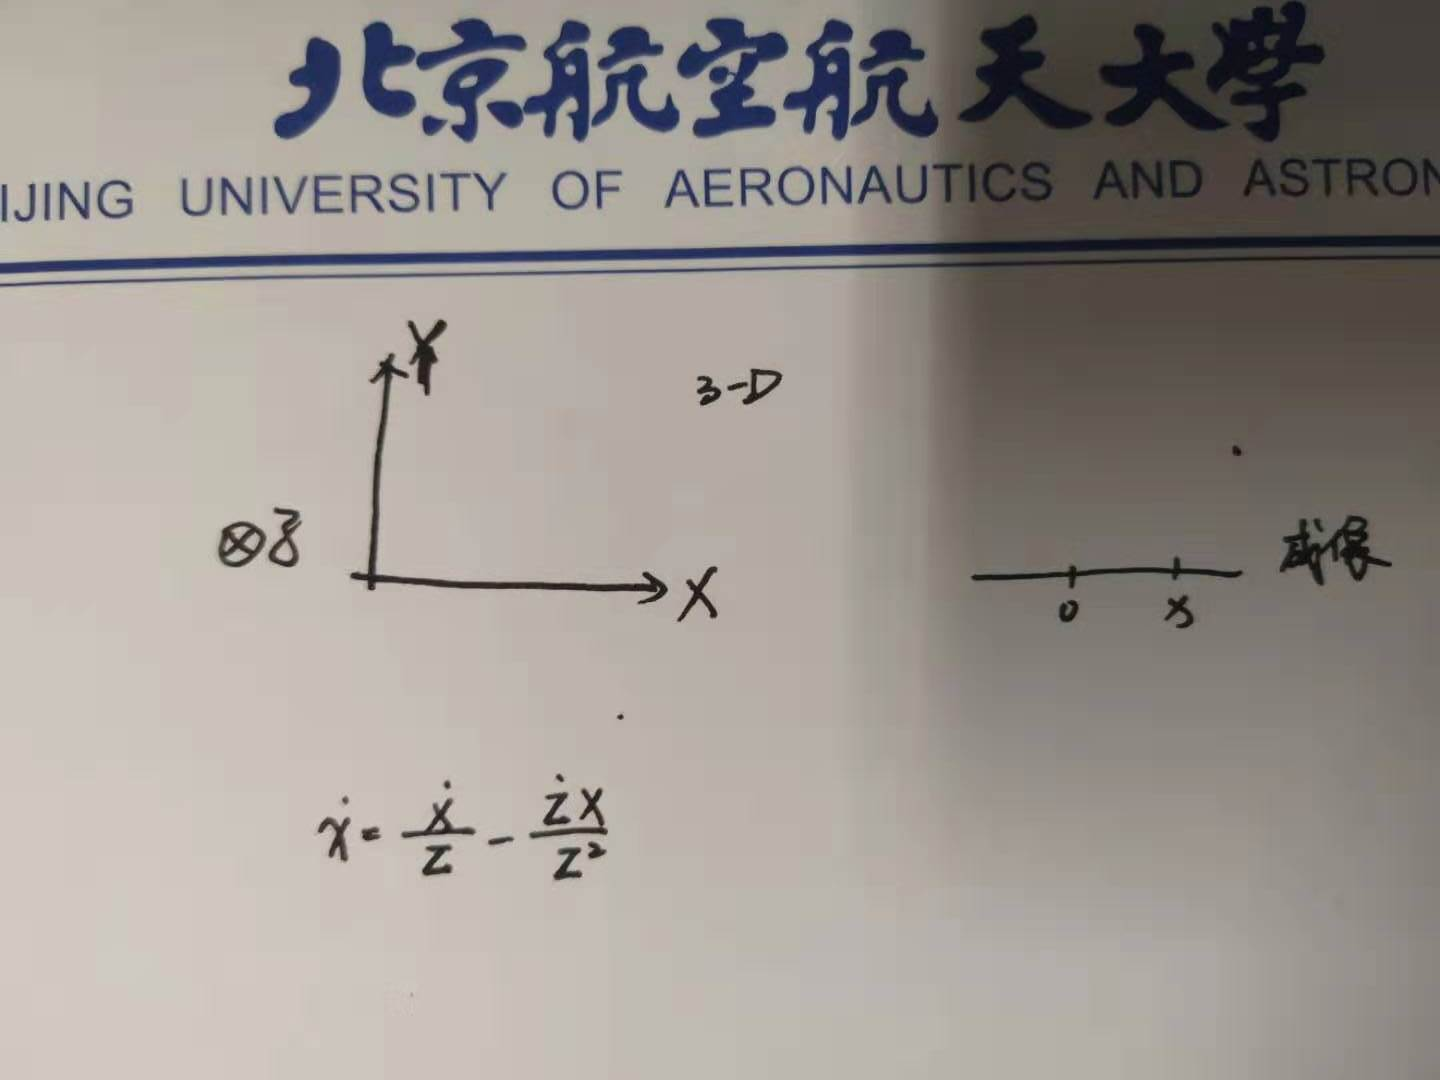 北京航空航天大學
IJING UNIVERSITY OF AERONAUTICS AND ASTRON
Y
3-D
⊗Z
成像
X
0 x
ẋ = Ẋ/Z - ŻX/Z²